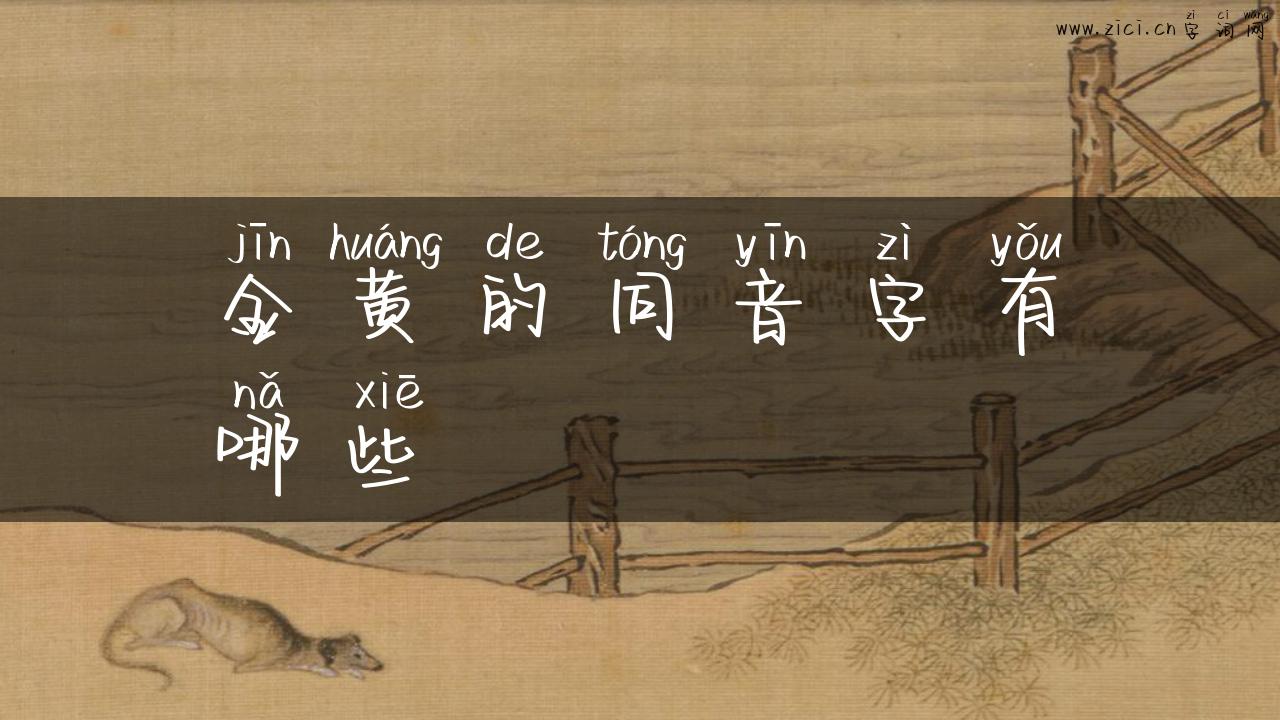 zì cí wǎng
www.zici.cn 字词网
jīn huáng de tóng yīn zì yǒu
金黄的同音字有
nǎ xiē
哪些